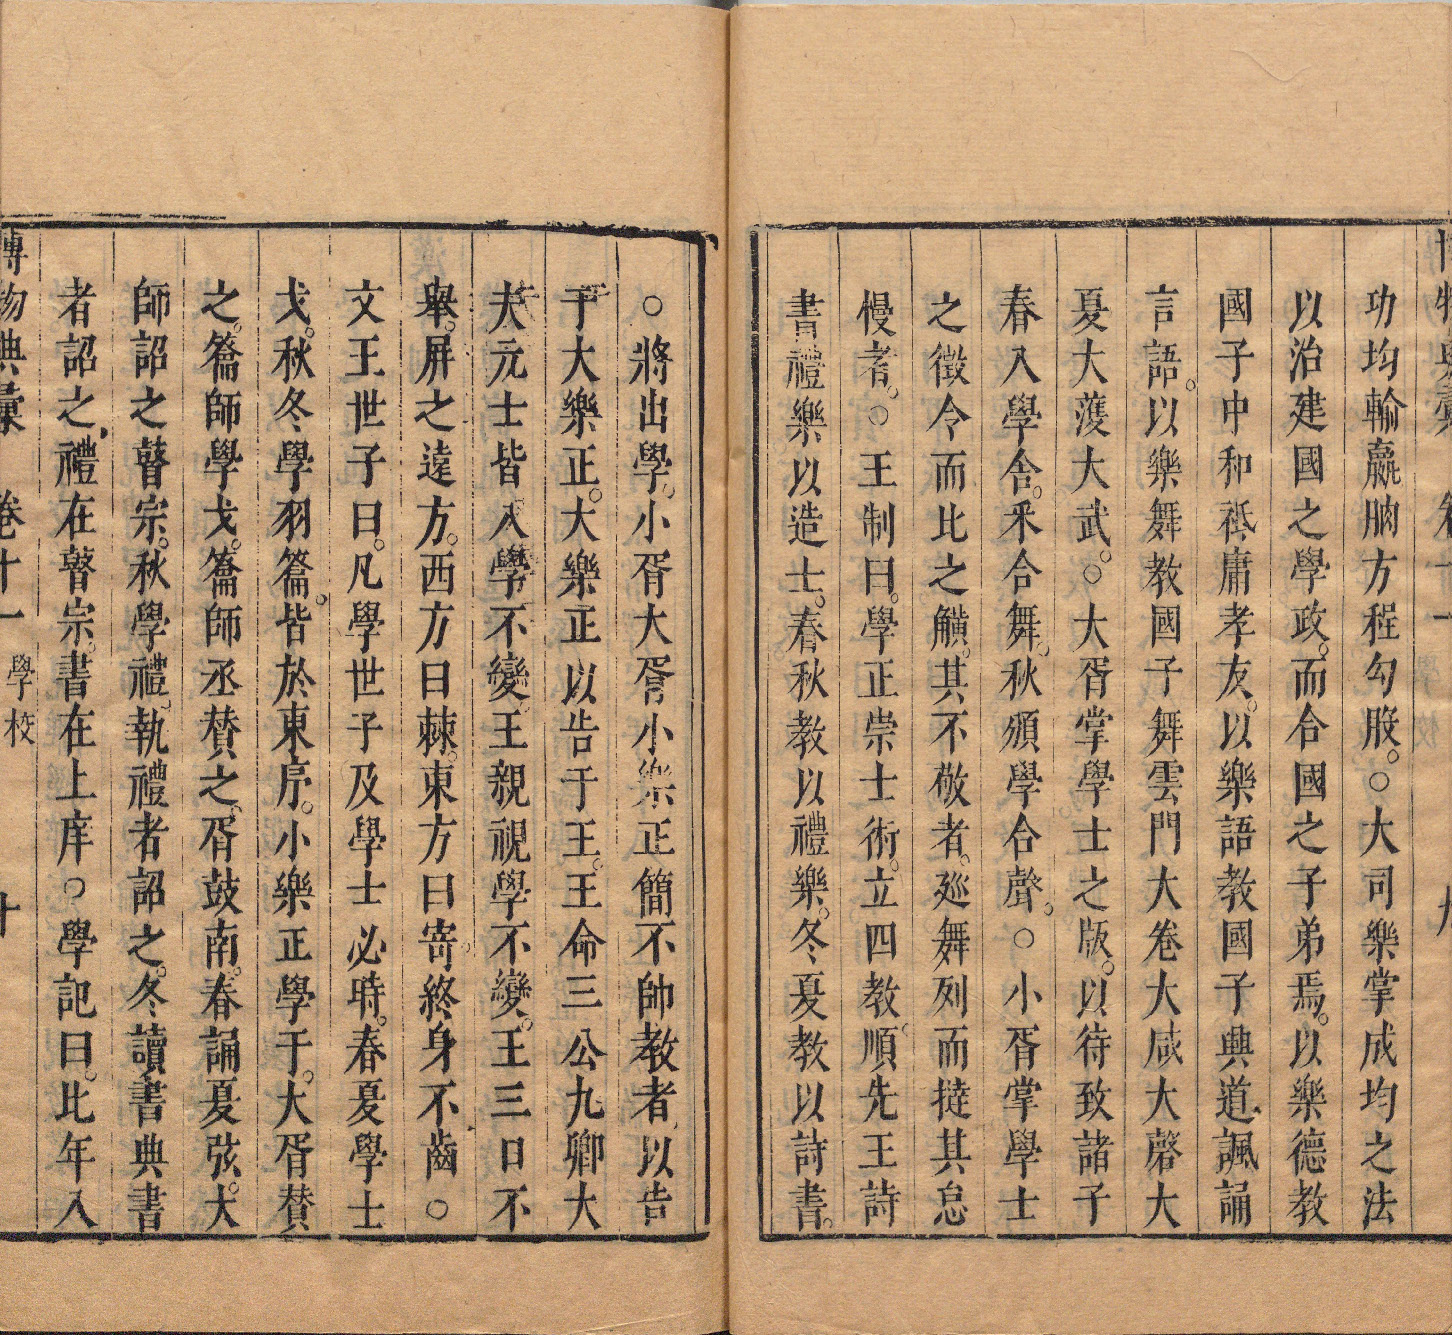 功均輸贏朒方程勾股。○大司樂掌成均之法
以治建國之學政。而合國之子弟焉。以樂德教
國子中和祗庸孝友。以樂語教國子興道諷誦
言語。以樂舞教國子舞雲門大卷大咸大磬大
夏大濩大武。○大胥掌學士之版。以待致諸子
春入學舍。釆合舞。秋頒學合聲。○小胥掌學士
之徵令而比之觵。其不敬者。廵舞列而撻其怠
慢者。○王制曰。學正崇士術。立四教。順先王詩
書禮樂以造士。春秋教以禮樂。冬夏教以詩書。
○將出學。小胥大胥小樂正簡不帥教者以告
于大樂正。大樂正以告于王。王命三公九卿大
夫元士皆入學不變。王親視學不變。王三日不
舉。屏之遠方。西方曰棘。東方曰寄。終身不齒○
文王世子曰。凡學世子及學士必時。春夏學士
戈。秋冬學羽籥。皆於東序。小樂正學于。大胥贊
之。籥師學戈。籥師丞贊之。胥鼓南。春誦夏弦。大
師詔之瞽宗。秋學禮。執禮者詔之。冬讀書典書
者詔之。禮在瞽宗。書在上庠○學記曰。比年入
博物典彙 卷十一 學校 十